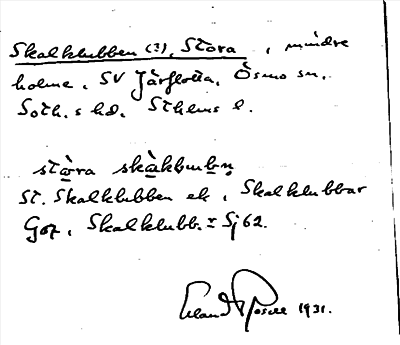 Skalklubben (?), Stora, mindre
holme, SV Järflotta, Ösmo sn,
Soth. s hd. Sthlms l.
stàra skàkbmbn
St. Skalklubben ek, Skalklubbar
Gez, Skalklubb. r Sj 62.
Erland Rosell 1931.